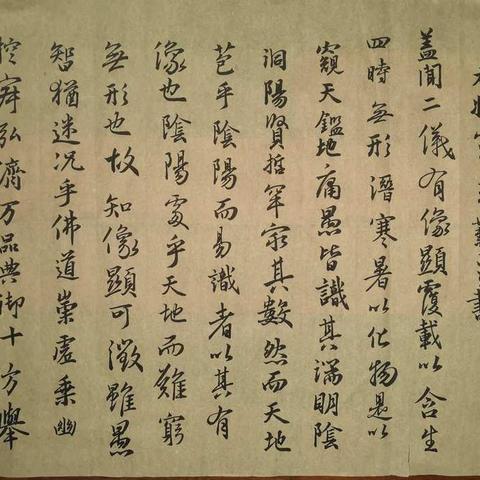 蓋聞二儀有像顯覆載以含生
四時無形潛寒暑以化物是以
窺天鑑地庸愚皆識其端明陰
洞陽賢哲罕窮其數然而天地
苞乎陰陽而易識者以其有
像也陰陽處乎天地而難窮
無形也故知像顯可徵雖愚
智猶迷況乎佛道崇虛乘幽
控寂弘濟万品典御十方舉